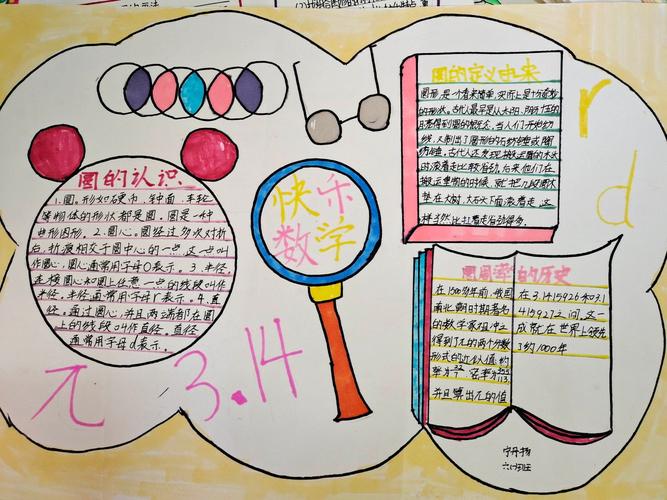 圆的认识
1.圆。形状如硬币、钟面、车轮
等物体的形状都是圆。圆是一种
曲形图形。2.圆心。圆经过多次对折
后,折痕相交于圆中心的一点,这一点叫
作圆心。圆心通常用字母O表示。3.半径。
连接圆心和圆上任意一点的线段叫作
半径。半径通常用字母r表示。4.直
径。通过圆心,并且两端都在圆
上的线段叫作直径。直径
通常用字母d表示。
快乐
数学
π 3.14
圆的定义由来
圆形,是一个看来简单,实际上是十分奇妙
的形状。古代人最早是从太阳、阴历十五的
月亮得到圆的概念。
古代人还发现搬运圆的木头
时滚着走比较省劲,后来他们在
搬运重物的时候,就把几段圆木
垫在大树、大石头下面滚着走,这
样当然比扛着走省劲得多。
r
d
圆周率的历史
在1500多年前,我国
南北朝时期著名
的数学家祖冲之
得到了π的两个分数
形式的近似值:约
率为22/7,密率为355/113,
并且算出π的值
在3.1415926和3.1
415927之间,这一
成就在世界上领先
了约1000年
宁丹扬
六(1)班